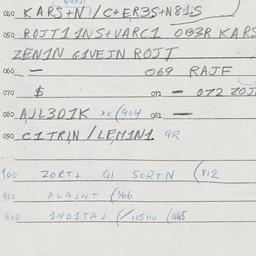 040 KARS+N / C+ER3S+N81S
050 ROJT1 1NS+VARC1 OB3R KARS
ZEN1N G1VEJN ROJT
060 — 069 RAJF
070 $ 071 — 072 ZOJ
080 AJL3D1K xx (904 081 —
090 C1TR1N / LEM1N1 GR
100 ZORT1 G1 SORTN (812
960 ALAJNT (366
900 1ND1TAJ (/105110 (1145